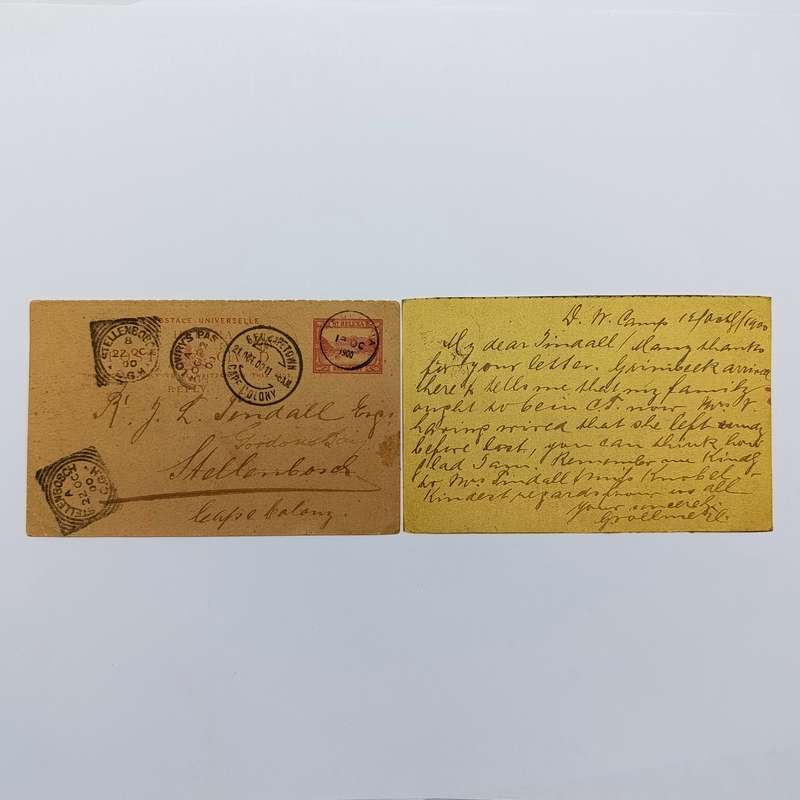 POSTALE UNIVERSELLE
ST HELENA
REPLY
STELLENBOSCH
8
22 OC
00
C.G.H.
LOWRY'S PAS
OC
00
CAPETOWN
CAPE COLONY
OC
1900
R. J. L. Tindall Esq.
Gordons Bay
Stellenbosch
Cape Colony.
STELLENBOSCH
A
22 OC
00
C.G.H.
D. W. Camp 12/Oct/1900
My dear Tindall/Many thanks
for your letter. Grimbeek arrived
here & tells me that my family
ought to be in C.T. now Mrs V
having wired that she left
before last, you can think how
glad I am. Remember me kindly
to Mrs Tindall Miss Knobel &
Kindest regards from us all
Your sincerely